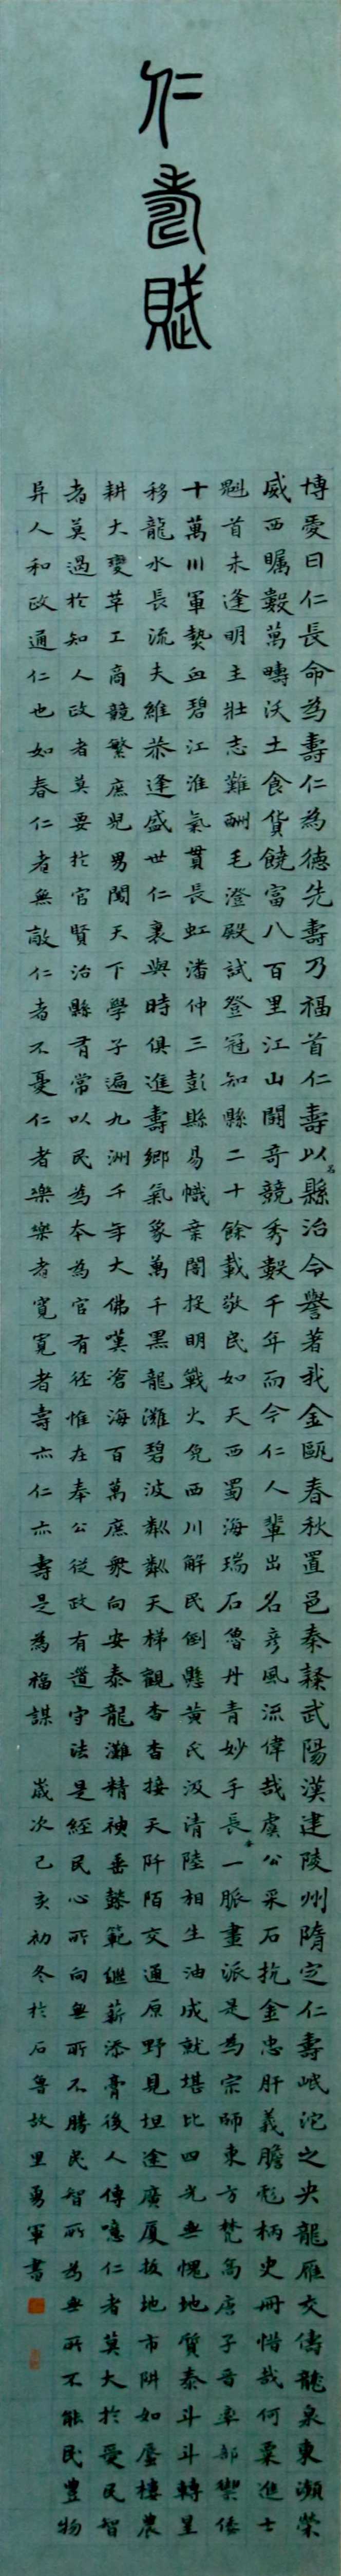 仁壽賦
博愛曰仁長命為壽仁為德先壽乃福首仁壽以名縣治令譽著我金甌春秋置邑秦隸武陽漢建陵州隋定仁壽岷沱之央龍雁交儔龍泉東瀕榮
威西矚數萬疇沃土食貨饒富八百里江山鬪奇競秀數千年而今仁人輩出名彦風流偉哉虞公采石抗金忠肝義膽彪柄史冊惜哉何㮚進士
魁首未逢明主壯志難酬毛澄殿試登冠知縣二十餘載敬民如天西蜀海瑞石魯丹青妙手長一脈畫派是為宗師東方梵高唐子晉率部禦倭
十萬川軍熱血碧江淮氣貫長虹潘仲三彭縣易幟棄闇投明戰火免西川解民倒懸黃氏汲清陸相生油成就堪比四光無愧地質泰斗斗轉星
移龍水長流夫維恭逢盛世仁裏與時俱進壽鄉氣象萬千黑龍灘碧波粼粼天梯觀杳杳接天阡陌交通原野見坦途廣厦拔地市阱如蜃樓農
耕大變革工商競繁庶兒男闖天下學子遍九洲千年大佛嘆滄海百萬庶衆向安泰龍灘精神垂懿範繼薪添膏後人傳噫仁者莫大於愛民智
者莫過於知人政者莫要於官賢治縣者當以民為本為官有徑惟在奉公從政有道守法是經民心所向無所不勝民智所為無所不能民豐物
阜人和政通仁也如春仁者無敵仁者不憂仁者樂樂者寬寬者壽亦仁亦壽是為福謀 歲次己亥初冬於石魯故里勇軍書